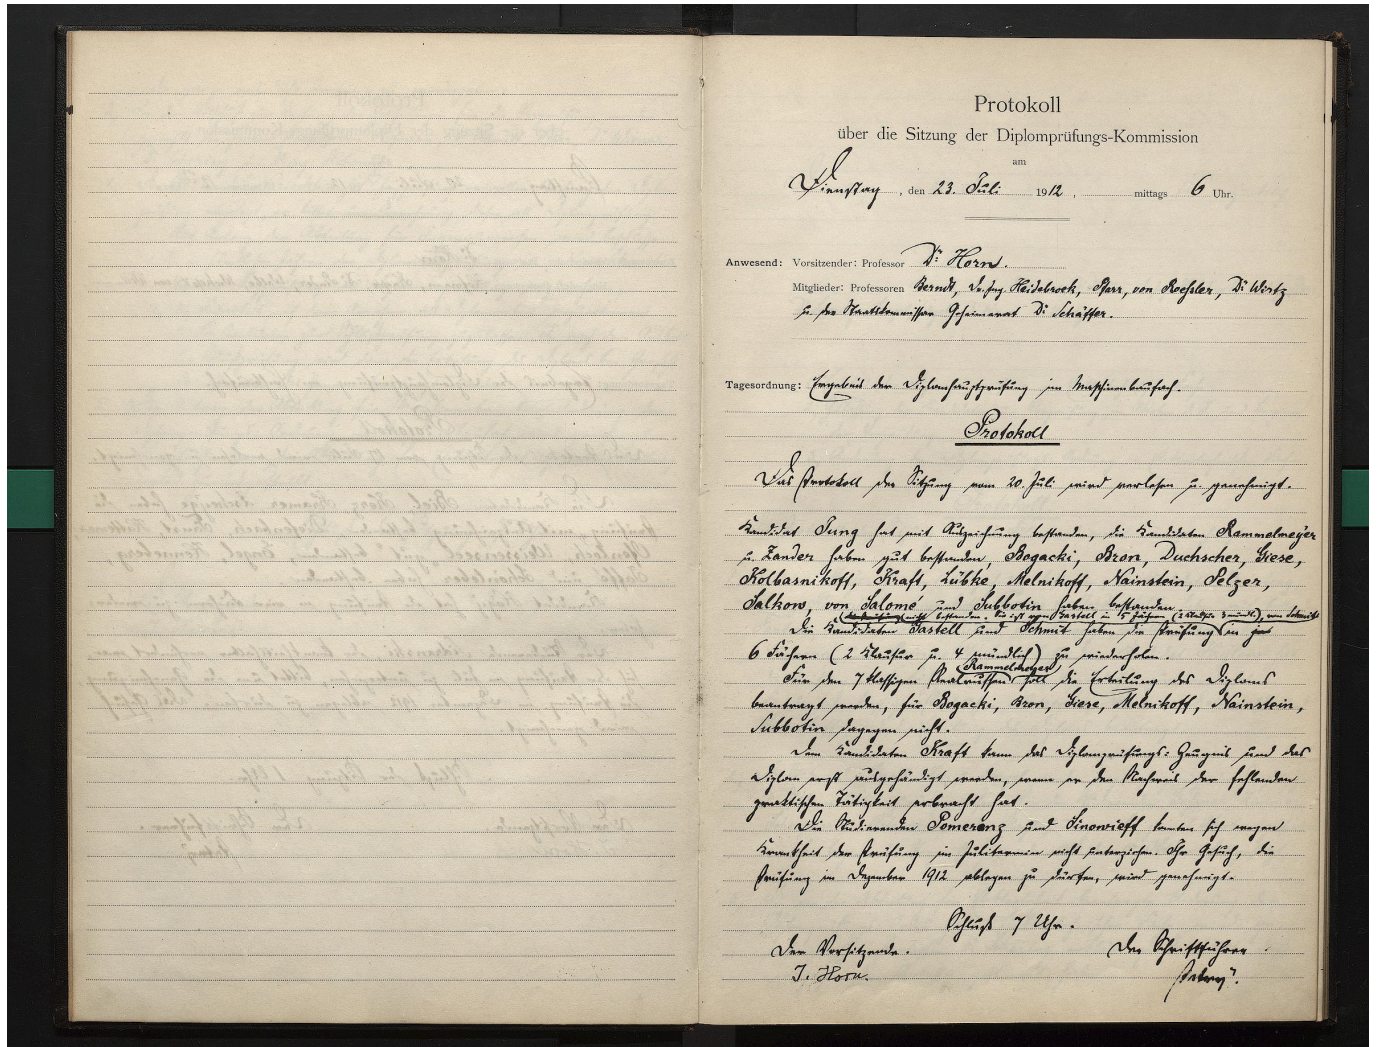 Protokoll
über die Sitzung der Diplomprüfungs-Kommission
am
Dienstag, den 23. Juli 1912, mittags 6 Uhr.
Anwesend: Vorsitzender: Professor Dr. Horn.
Mitglieder: Professoren Berndt, Dr. Ing. Heidebroek, Pfarr, von Roeßler, Dr. Wirtz
u. der Staatskommissar Geheimerat Dr. Schäffer.
Tagesordnung: Ergebnis der Diplomhauptprüfung im Maschinenbaufach.
Protokoll
Das Protokoll der Sitzung vom 20. Juli wird verlesen u. genehmigt.
Kandidat Jung hat mit Auszeichnung bestanden, die Kandidaten Rammelmeyer
u. Zander haben gut bestanden, Bogacki, Bron, Duchscher, Giese,
Kolbasnikoff, Kraft, Lübke, Melnikoff, Nainstein, Pelzer,
Salkow, von Salomé und Subbotin haben bestanden.
nicht bestanden. Sie ist von Gastell in 5 Fächern (2 Klausur 3 mündl.), von Schmitt
Die Kandidaten Gastell und Schmitt haben die Prüfung in
6 Fächern (2 Klausur u. 4 mündlich) zu wiederholen.
Rammelmeyer
Für den 7 klassigen Realrussen soll die Erteilung des Diploms
beantragt werden, für Bogacki, Bron, Giese, Melnikoff, Nainstein,
Subbotin dagegen nicht.
Dem Kandidaten Kraft kann das Diplomprüfungs-Zeugnis und das
Diplom erst ausgehändigt werden, wenn er den Nachweis der fehlenden
praktischen Tätigkeit erbracht hat.
Die Studierenden Pomeranz und Sinowieff konnten sich wegen
Krankheit der Prüfung im Julitermin nicht unterziehen. Ihr Gesuch, die
Prüfung im Dezember 1912 ablegen zu dürfen, wird genehmigt.
Schluß 7 Uhr.
Der Vorsitzende. Der Schriftführer.
J. Horn.